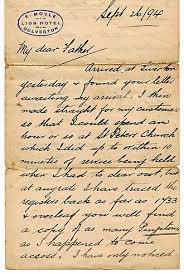 E. MOYLE
LION HOTEL
DULVERTON
Sept 26/94
My dear Father
Arrived at Tiverton
yesterday & found your letter
awaiting my arrival. I then
made straight for my customers
so that I could spend an
hour or so at St Peters Church
which I did up to within 10
minutes of service being held
when I had to clear out, but
at any rate I have traced the
registers back as far as 1733
& overleaf you will find
a copy of as many
as I happened to come
across. I have only noticed